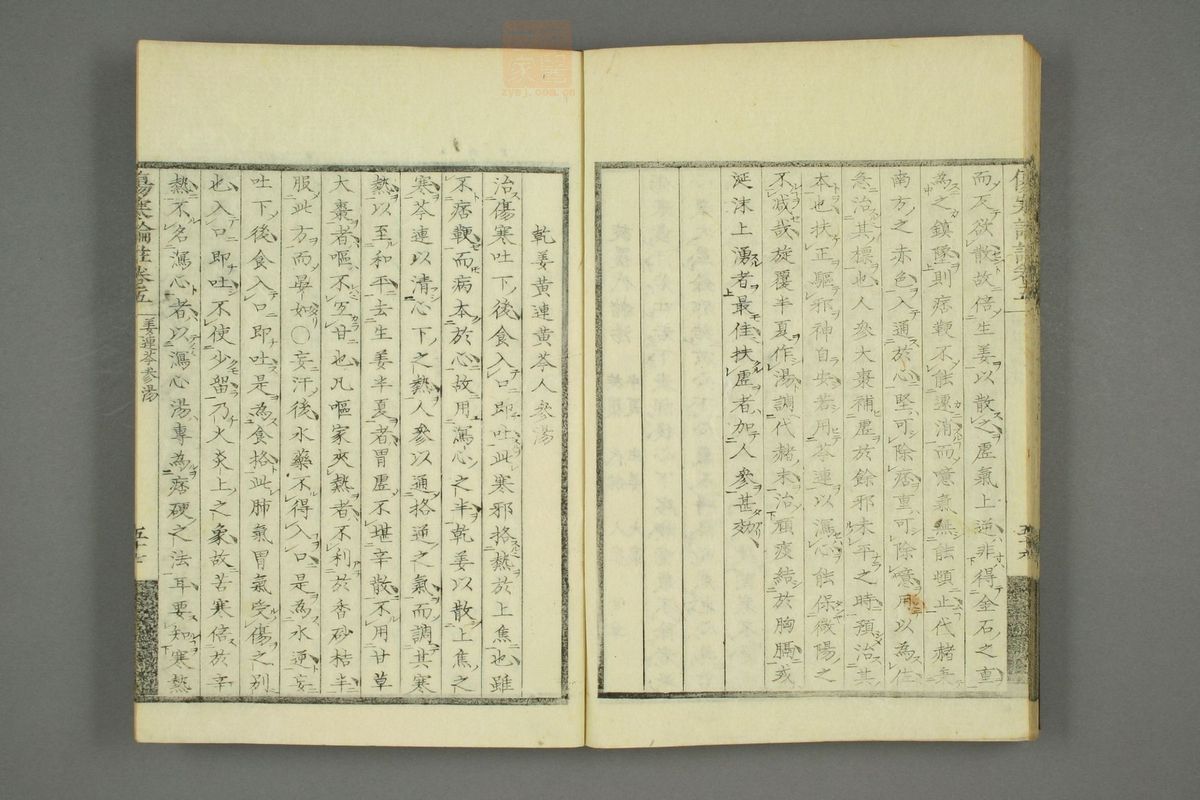 而又欲散故倍生姜以散之虛氣上逆非得金石之重
為之鎮墜則痞鞕不能遽消而噫氣無能頓止代赭秉
南方之赤色入通於心堅可除痞重可除噫用以為佐
急治其標也人參大棗補虛於餘邪未平之時預治其
本也扶正驅邪神自安若用芩連以瀉心能保微陽之
不滅哉旋覆半夏作湯調代赭末治頑痰結於胸膈或
涎沫上湧者最佳扶虛者加人參甚効
乾姜黃連黃芩人參湯
治傷寒吐下後食入口即吐此寒邪格熱於上焦也雖
不痞鞕而病本於心故用瀉心之半乾姜以散上焦之
寒芩連以清心下之熱人參以通格逆之氣而調其寒
熱以至和平去生姜半夏者胃虛不堪辛散不用甘草
大棗者嘔不宐甘也凡嘔家夾熱者不利於香砂桔半
服此方而晏如〇妄汗後水藥不得入口是為水逆妄
吐下後食入口即吐是為食格此肺氣胃氣受傷之別
也入口即吐不使少留乃火炎上之象故苦寒倍於辛
熱不名瀉心者以瀉心湯專為痞硬之法耳要知寒熱
傷寒論註卷五
姜連芩參湯